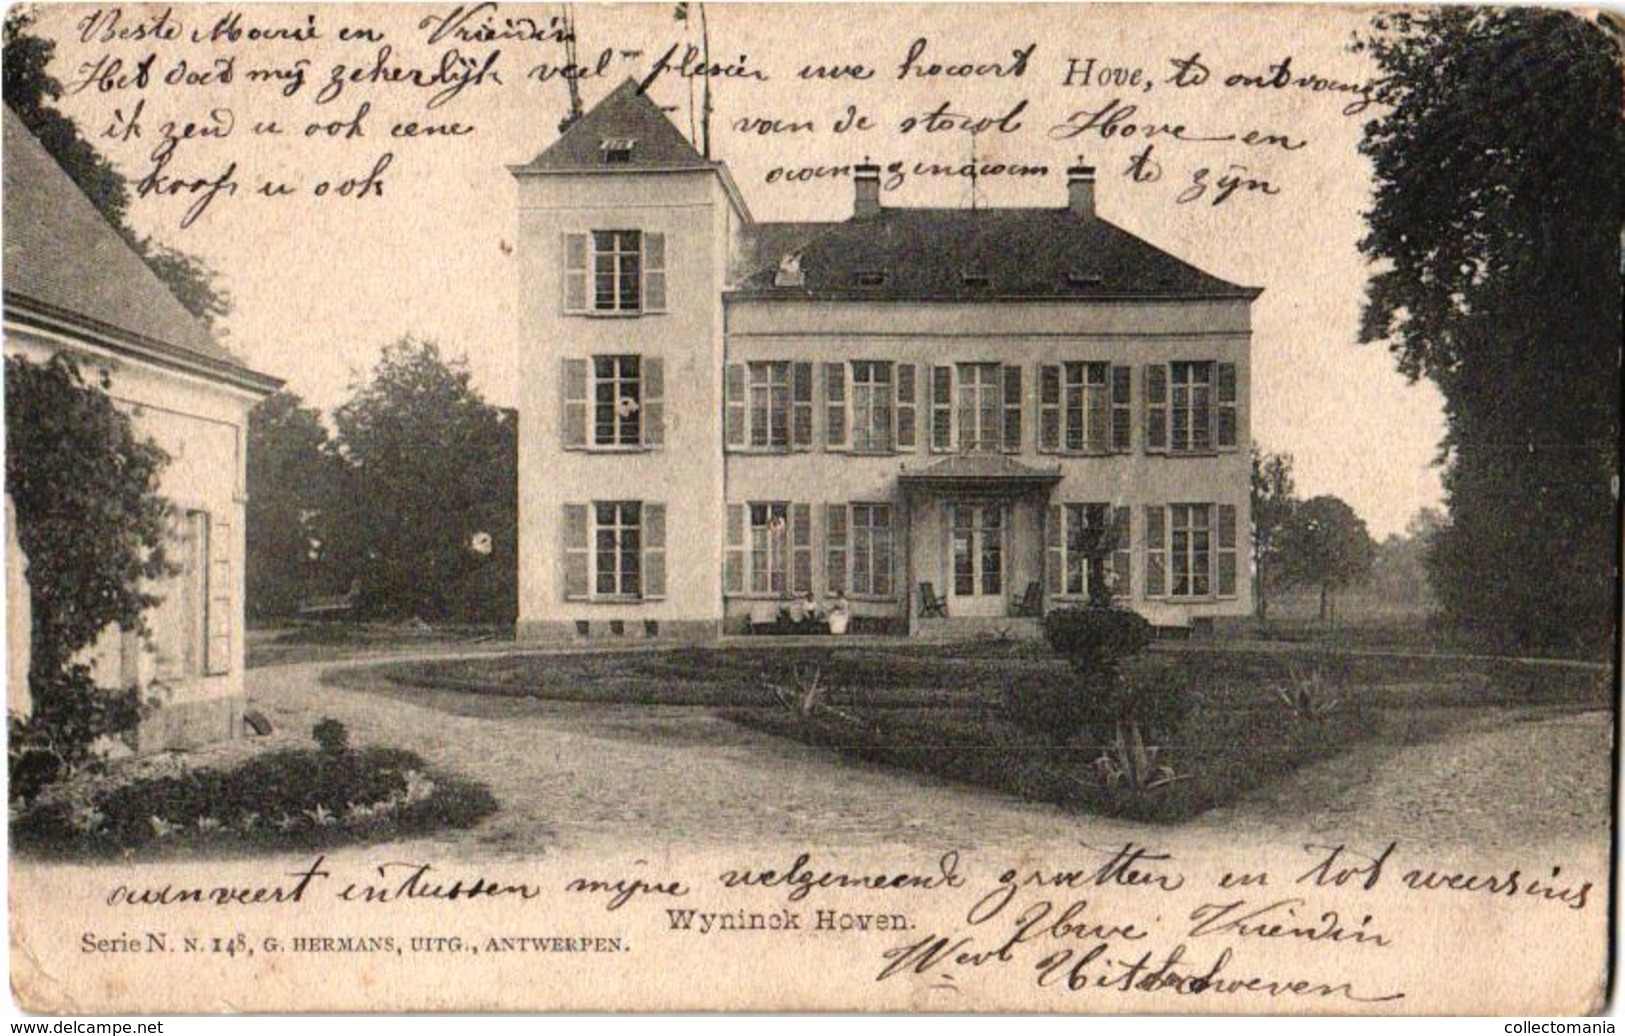 Beste Marie en Vriendin
Het doet mij zekerlijk veel plesier uwe kaart Hove, te ontvangen
ik zend u ook eene van de staat Hove en
koop u ook aangenaam te zijn
aanveert intussen mijne welgemeende groetten en tot weersins
Wyninck Hoven.
Uwe Vriendin
Serie N. N. 148, G. HERMANS, UITG., ANTWERPEN.
collectomania